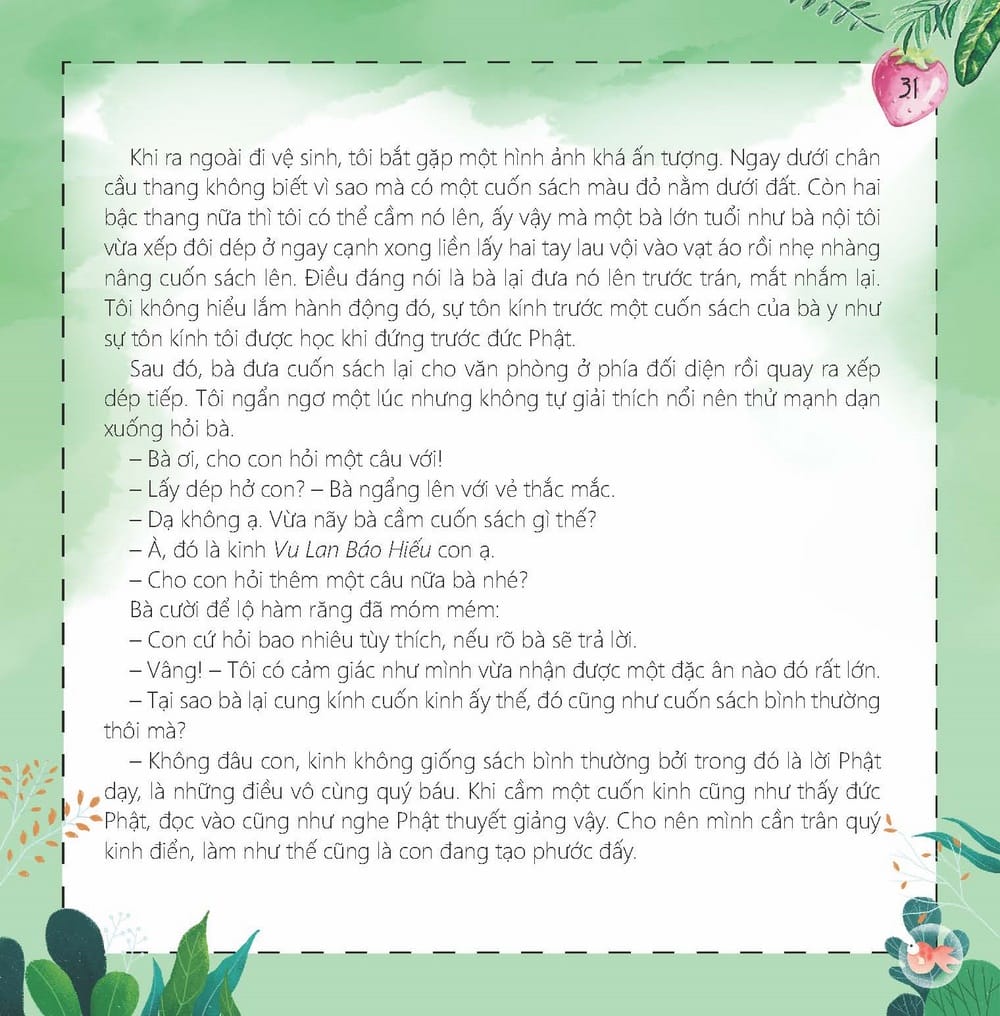 31
Khi ra ngoài đi vệ sinh, tôi bắt gặp một hình ảnh khá ấn tượng. Ngay dưới chân
cầu thang không biết vì sao mà có một cuốn sách màu đỏ nằm dưới đất. Còn hai
bậc thang nữa thì tôi có thể cầm nó lên, ấy vậy mà một bà lớn tuổi như bà nội tôi
vừa xếp đôi dép ở ngay cạnh xong liền lấy hai tay lau vội vào vạt áo rồi nhẹ nhàng
nâng cuốn sách lên. Điều đáng nói là bà lại đưa nó lên trước trán, mắt nhắm lại.
Tôi không hiểu lắm hành động đó, sự tôn kính trước một cuốn sách của bà y như
sự tôn kính tôi được học khi đứng trước đức Phật.
Sau đó, bà đưa cuốn sách lại cho văn phòng ở phía đối diện rồi quay ra xếp
dép tiếp. Tôi ngẩn ngơ một lúc nhưng không tự giải thích nổi nên thử mạnh dạn
xuống hỏi bà.
– Bà ơi, cho con hỏi một câu với!
– Lấy dép hở con? – Bà ngẩng lên với vẻ thắc mắc.
– Dạ không ạ. Vừa nãy bà cầm cuốn sách gì thế?
– À, đó là kinh Vu Lan Báo Hiếu con ạ.
– Cho con hỏi thêm một câu nữa bà nhé?
Bà cười để lộ hàm răng đã móm mém:
– Con cứ hỏi bao nhiêu tùy thích, nếu rõ bà sẽ trả lời.
– Vâng! – Tôi có cảm giác như mình vừa nhận được một đặc ân nào đó rất lớn.
– Tại sao bà lại cung kính cuốn kinh ấy thế, đó cũng như cuốn sách bình thường
thôi mà?
– Không đâu con, kinh không giống sách bình thường bởi trong đó là lời Phật
dạy, là những điều vô cùng quý báu. Khi cầm một cuốn kinh cũng như thấy đức
Phật, đọc vào cũng như nghe Phật thuyết giảng vậy. Cho nên mình cần trân quý
kinh điển, làm như thế cũng là con đang tạo phước đấy.